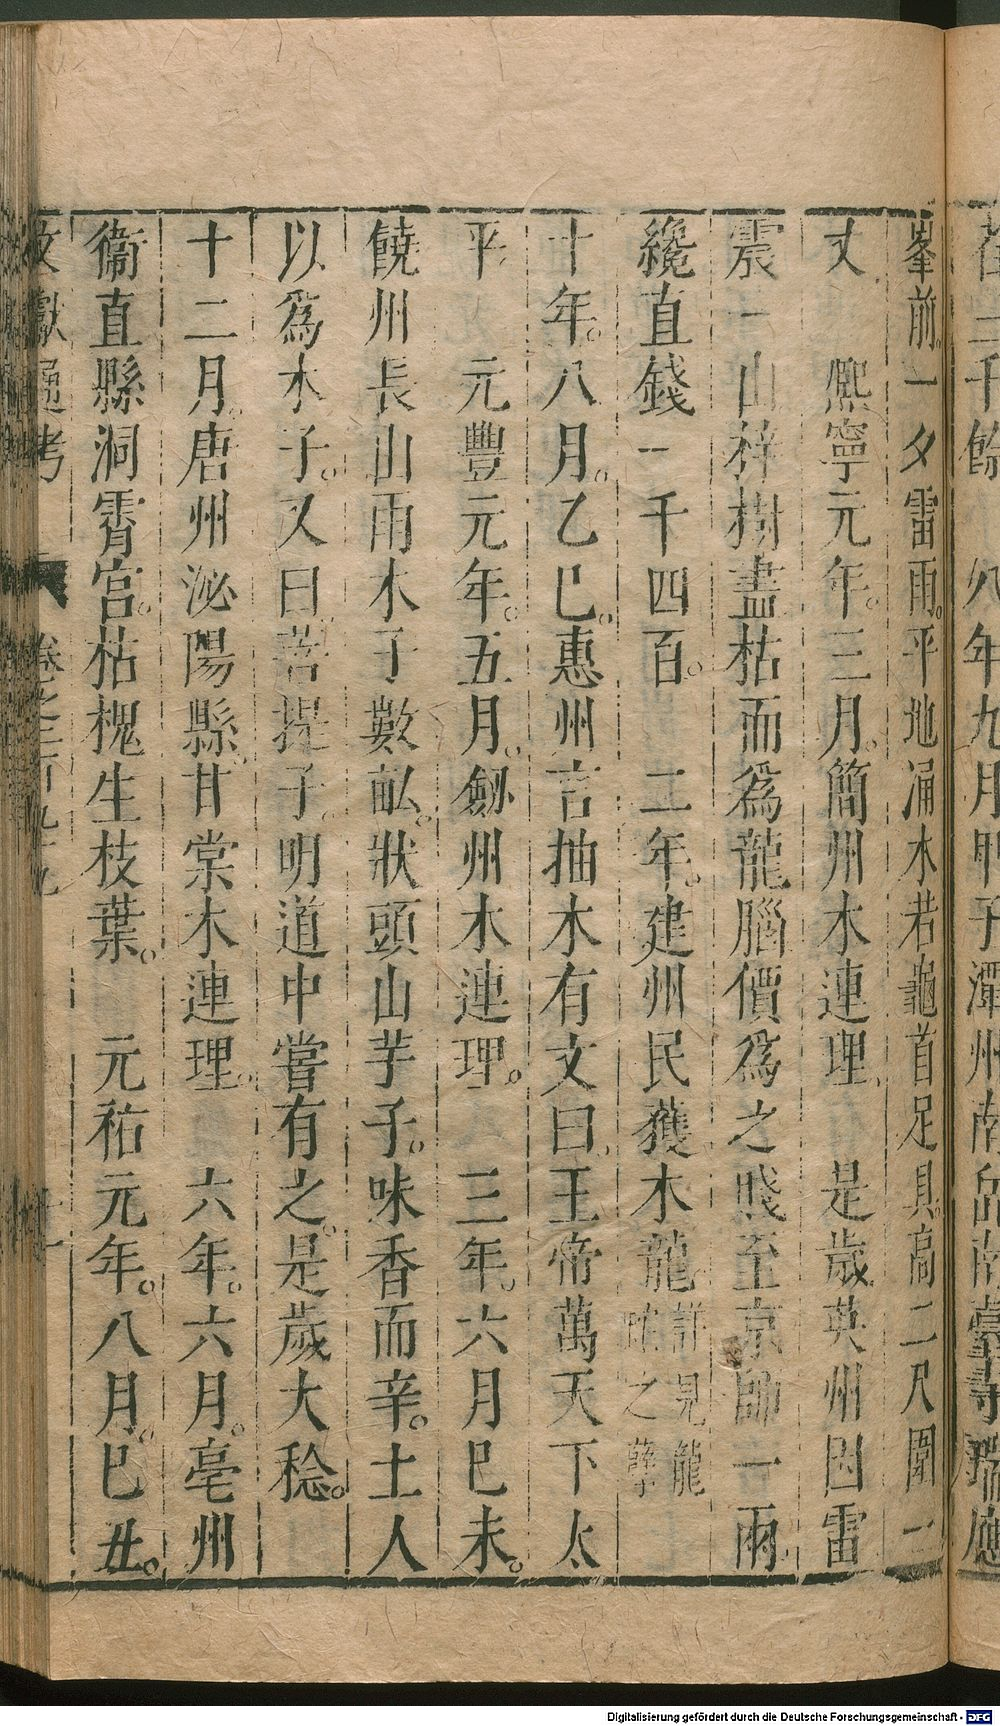 二千餘　八年九月甲子潭州南岳南臺寺瑞應
峯前。一夕雷雨。平地涌木若龜首足具。高二尺圍一
丈　熙寧元年。三月。簡州木連理。　是歲英州因雷
震一山梓樹盡枯而爲龍腦價爲之賤至京師一兩
纔直錢一千四百。　二年。建州民獲木龍詳見龍蛇之孽
十年。八月。乙巳。惠州吉抽木有文曰。王帝萬天下太
平　元豐元年。五月。劒州木連理。　三年。六月巳未。
饒州長山雨木子數畝。狀頭山芋子。味香而辛。土人
以爲木子。又曰。菩提子。明道中嘗有之。是歲大稔。
十二月。唐州泌陽縣。甘棠木連理。　六年。六月。亳州
衞直縣洞霄宮。枯槐生枝葉。　元祐元年。八月。巳丑。
文獻通考　卷之
Digitalisierung gefördert durch die Deutsche Forschungsgemeinschaft - DFG